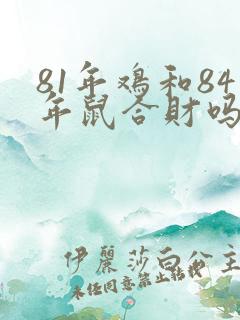 81年鸡和84
年鼠合財吗
伊麗莎白公主
未经同意禁止转载